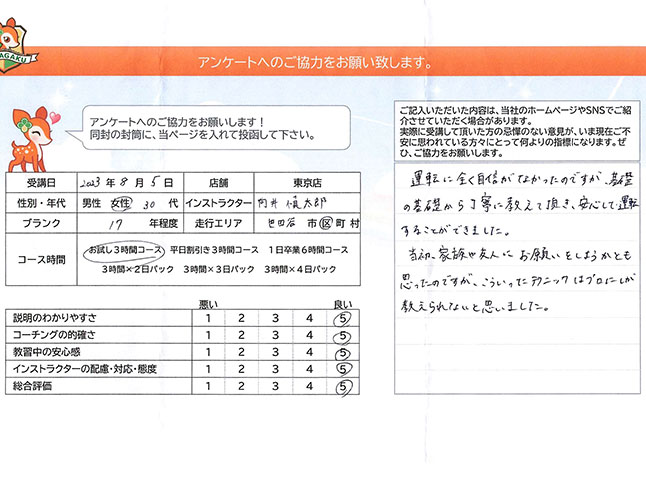 AGAKU
アンケートへのご協力をお願い致します。
アンケートへのご協力をお願いします！
同封の封筒に、当ページを入れて投函して下さい。
受講日 2023年 8月 5日 店舗 東京店
性別・年代 男性 女性 30代 インストラクター 向井 慎太郎
ブランク 17 年程度 走行エリア 世田谷 市 区 町 村
コース時間 お試し3時間コース 平日割引き3時間コース 1日卒業6時間コース
3時間×2日パック 3時間×3日パック 3時間×4日パック
悪い 良い
説明のわかりやすさ 1 2 3 4 5
コーチングの的確さ 1 2 3 4 5
教習中の安心感 1 2 3 4 5
インストラクターの配慮・対応・態度 1 2 3 4 5
総合評価 1 2 3 4 5
ご記入いただいた内容は、当社のホームページやSNSでご紹
介させていただく場合があります。
実際に受講して頂いた方の忌憚のない意見が、いま現在ご不
安に思われている方々にとって何よりの指標になります。ぜ
ひ、ご協力をお願いします。
運転に全く自信がなかったのですが、基礎
の基礎から丁寧に教えて頂き、安心して運転
することができました。
当初、家族や友人にお願いをしようかとも
思ったのですが、こういったテクニックはプロにしか
教えられないと思いました。